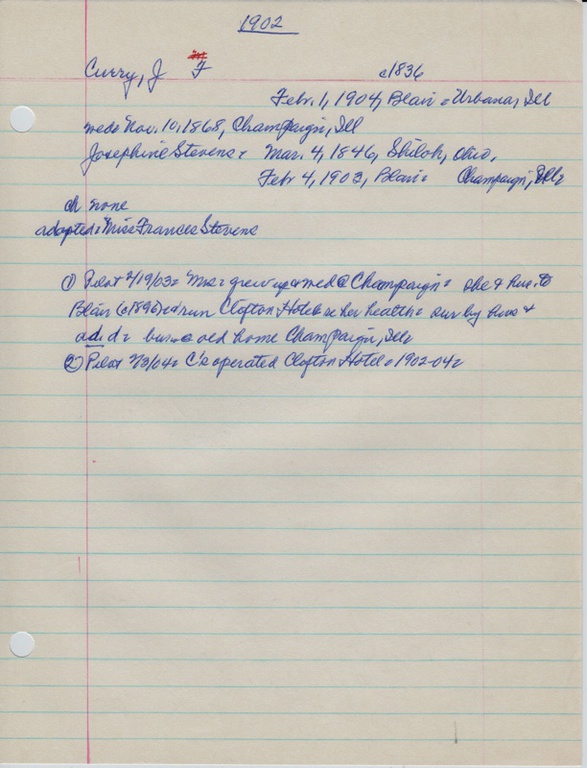 1902
Curry, J F c1836
Feb. 1, 1904, Blair = Urbana, Ill
med= Nov. 10, 1868, Champaign, Ill
Josephine Stevens = Mar. 4, 1846, Shiloh, Ohio,
Feb 4, 1903, Blair = Champaign, Ill=
ch none
adopted = "Miss Frances Stevens
① Pilot 2/19/03 = "Mrs = grew up & med @ Champaign = she & hus. to
Blair (c1896) run Clifton Hotel = her health = sur by hus &
ad. d = bur = old home Champaign, Ill=
② Pilot 2/3/04 = C's operated Clifton Hotel = 1902-04=